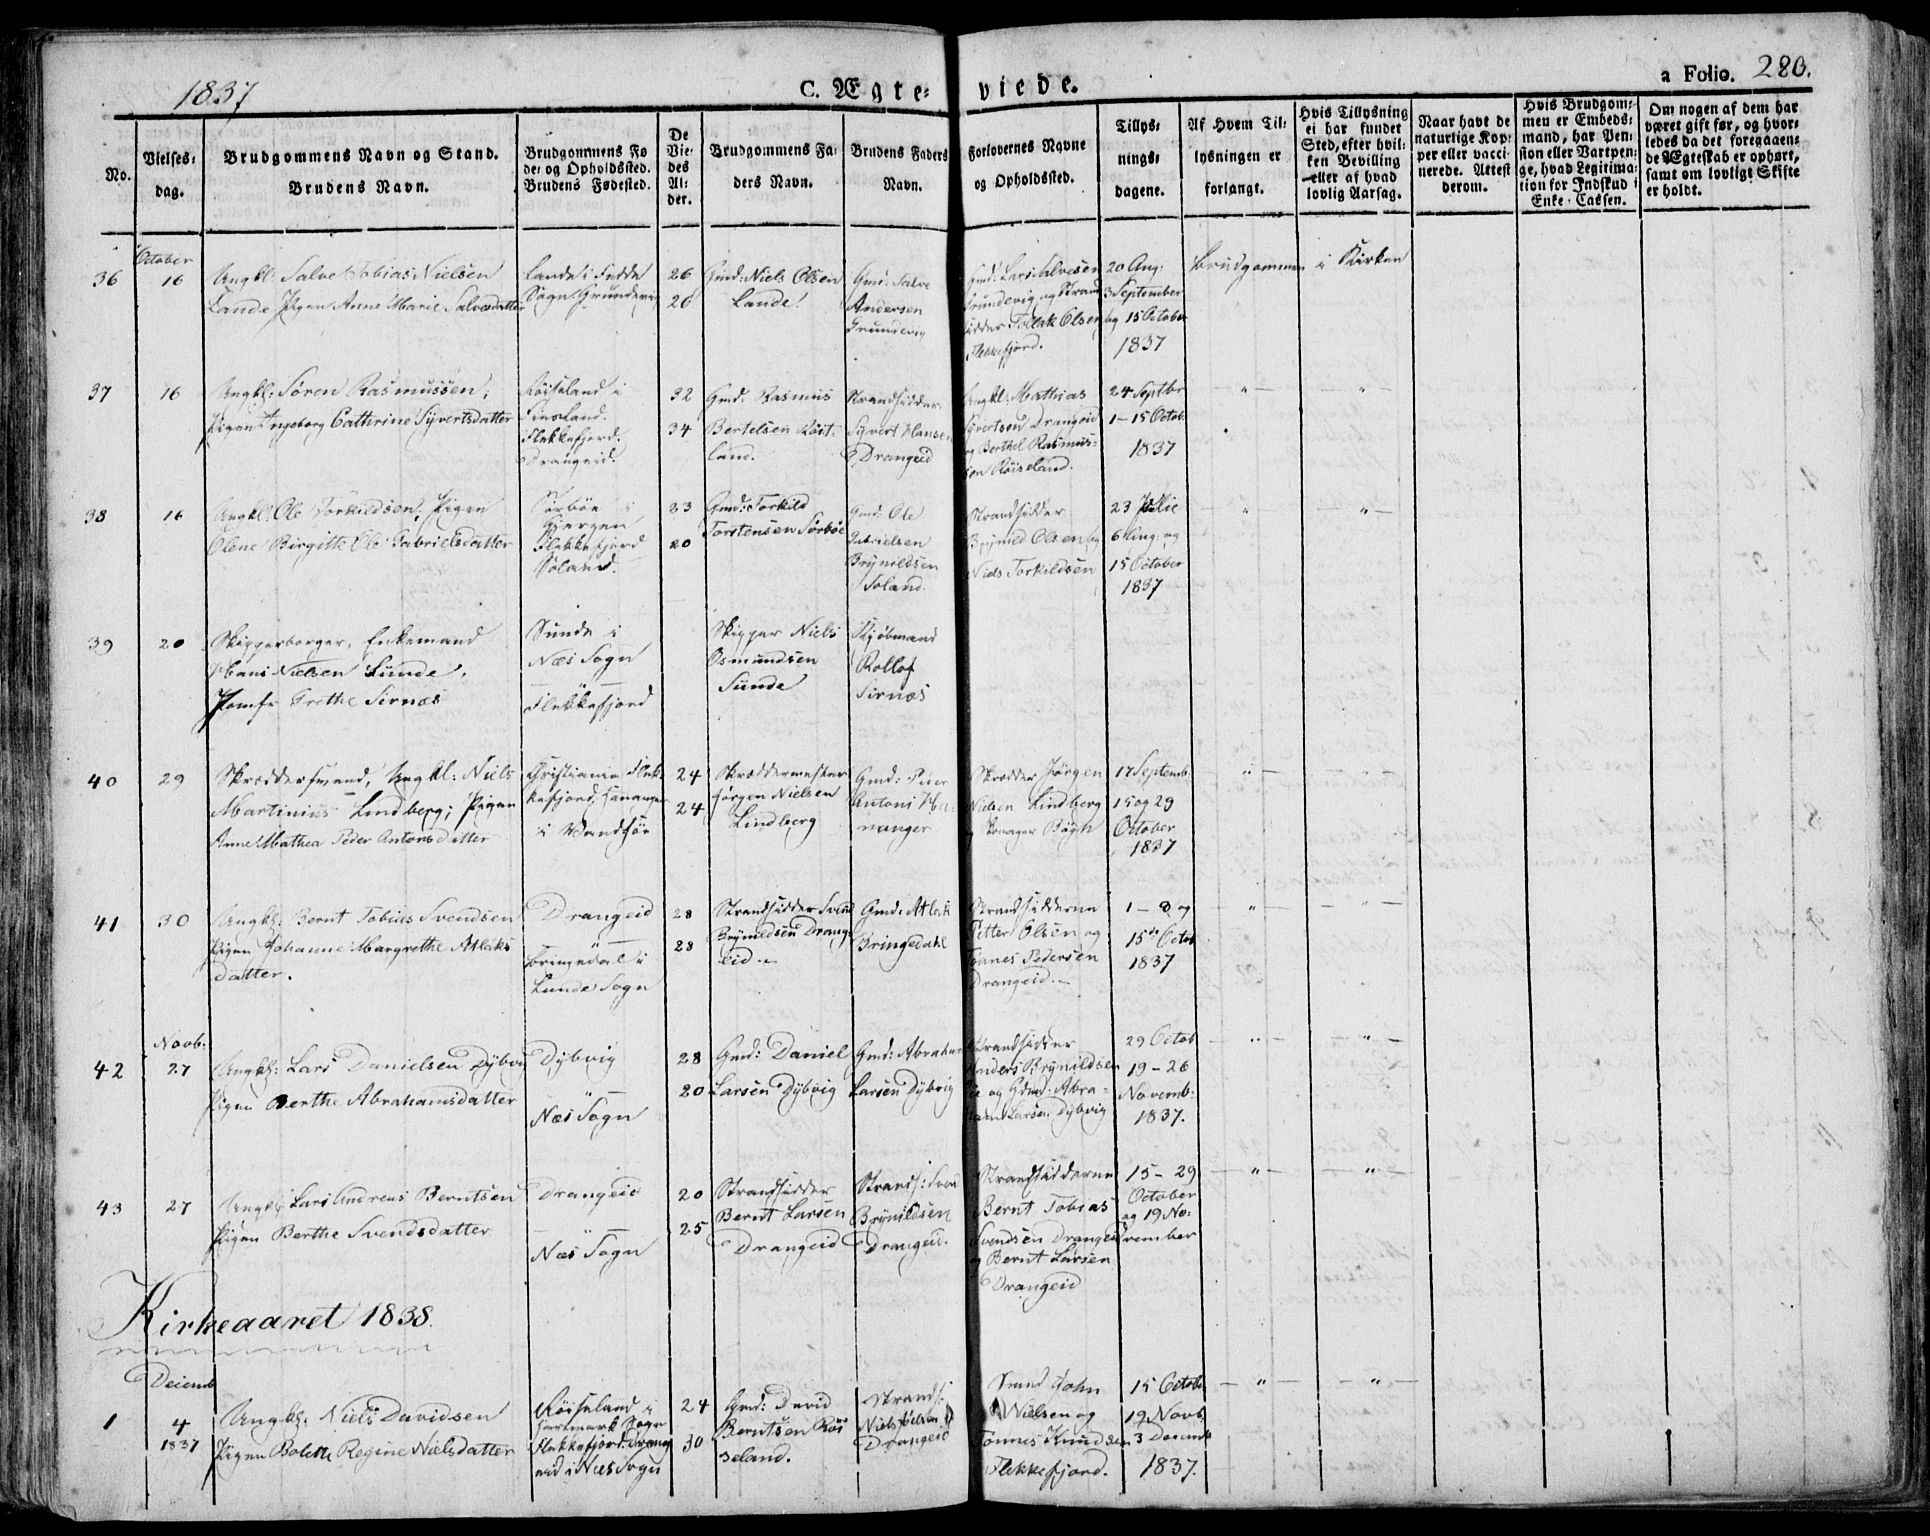 1837
C. Ægteviede.
a Folio. 280.
No.
Vielsesdag.
Brudgommens Navn og Stand.
Brudens Navn.
Brudgommens Føde- og Opholdssted.
Brudens Fødested.
De Viedes Alder.
Brudgommens Faders Navn.
Brudens Faders Navn.
Forlovernes Navne og Opholdssted.
Tillysningsdagene.
Af Hvem Tillysningen er forlangt.
Hvis Tillysning ei har fundet Sted, efter hvilken Bevilling eller af hvad lovlig Aarsag.
Naar havt de naturlige Kopper eller vaccinerede. Attest derom.
Hvis Brudgommen er Embedsmand, har Pension eller Vartpenge, hvad Legitimation for Indskud i Enke-Cassen.
Om nogen af dem har været gift før, og hvorledes da det foregaaende Ægteskab er ophørt, samt om lovligt Skifte er holdt.
36
October
16
Ungkl: Salve Tobias Nielsen
Lande, Pigen Anne Marie Salvesdatter
Lande i Fedde
Sogn.
26
26
Gmd: Niels Olsen
Lande.
Gmd: Salve
Andersen
Grundevig
Gmd: Lars Salvesen
Grundevig og Strand
sidder Tollak Olsen
Flekkefjord.
20 Aug:
3 September
og 15 October
1837
Brudgommen
i Kirken
37
16
Ungkl: Søren Rasmussen,
Pigen Ingeborg Cathrine Syvertsdatter
Røiseland i
Finsland.
Flekkefjord.
Drangeid.
32
34
Gmd. Rasmus
Bertelsen Røise
land.
Strandsidder
Syvert Hansen
Drangeid
Ungkl: Mathias
Syvertsen Drangeid
og Berthel Rasmus-
sen Røiseland.
24 Septbr
1-15 Octob.
1837
38
16
Ungkl: Ole Torkildsen, Pigen
Olene Birgitte Ole Gabrielsdatter
Sørbøe i
Flekkefjord
Soland.
23
20
Gmd: Torkild
Torstensen Sørbøe
Gmd: Ole
Gabrielsen
Brynildsen
Soland.
Strandsidder
Brynild Olsen og
Niels Torkildsen
23 Julie
6 Aug: og
15 October
1837
39
20
Skipperborger, Enkemand
Hans Nielsen Sunde,
Jomfr Grethe Sirnæs
Sunde i
Næs Sogn
Flekkefjord
Skipper Niels
Osmundsen
Sunde
Kjøbmand
Rollof
Sirnæs
40
29
Skræddersvend, Ungkl: Niels
Martinius Lindberg; Pigen
Anne Mathea Peder Antonsdatter
Christiania Flek-
kefjord, Hananger
i Vandsøe
24
24
Skræddermester
Jørgen Nielsen
Lindberg
Gmd: Peder
Antoni Ha-
nanger
Skrædder Jørgen
Nielsen Lindberg
Bøgh
17 Septemb:
15 og 29
October
1837
41
30
Ungkl: Bernt Tobias Svendsen
Pigen Johanne Margrethe Atlaks
datter.
Drangeid
Bringedal i
Lunde Sogn
28
28
Strandsidder Svend
Brynildsen Drang-
eid
Gmd: Atlak
Bringedahl
Strandsidderne
Petter Olsen og
Tønnes Pedersen
Drangeid.
1 - 8 og
15de Octob
1837
42
Novb:
27
Ungkl: Lars Danielsen Dybvig
Pigen Berthe Abrahamsdatter
Dybvig
Næs Sogn
28
20
Gmd: Daniel
Larsen Dybvig
Gmd: Abraham
Larsen Dybvig
Strandsidder
Anders Brynildsen
og Gdmd: Abra-
ham Larsen Dybvig
29 Octob
19-26
Novemb:
1837.
43
27
Ungkl: Lars Andreas Berntsen
Pigen Berthe Svendsdatter
Drangeid
Næs Sogn
20
25
Strandsidder
Bernt Larsen
Drangeid
Strands: Svend
Brynildsen
Drangeid.
Strandsidderne
Bernt Tobias
Svendsen Drangeid
og Bernt Larsen
Drangeid
15-29
October
og 19 No-
vember
Kirkeaaret 1838.
Decemb
1
4
1837
Ungkl: Niels Davidsen
Pigen Bolette Regine Nielsdatter
Røiseland i
Hartmark Sogn
Flekkefjord. Drang
eid i Næs Sogn
24
30
Gmd: David
Berntsen Røi-
seland.
Strands:
Niels
Drangeid
Smed John
Nielsen og
Tønnes Knudsen
Flekkefjord.
15 Octobr
19 Novb.
3 Decemb
1837.